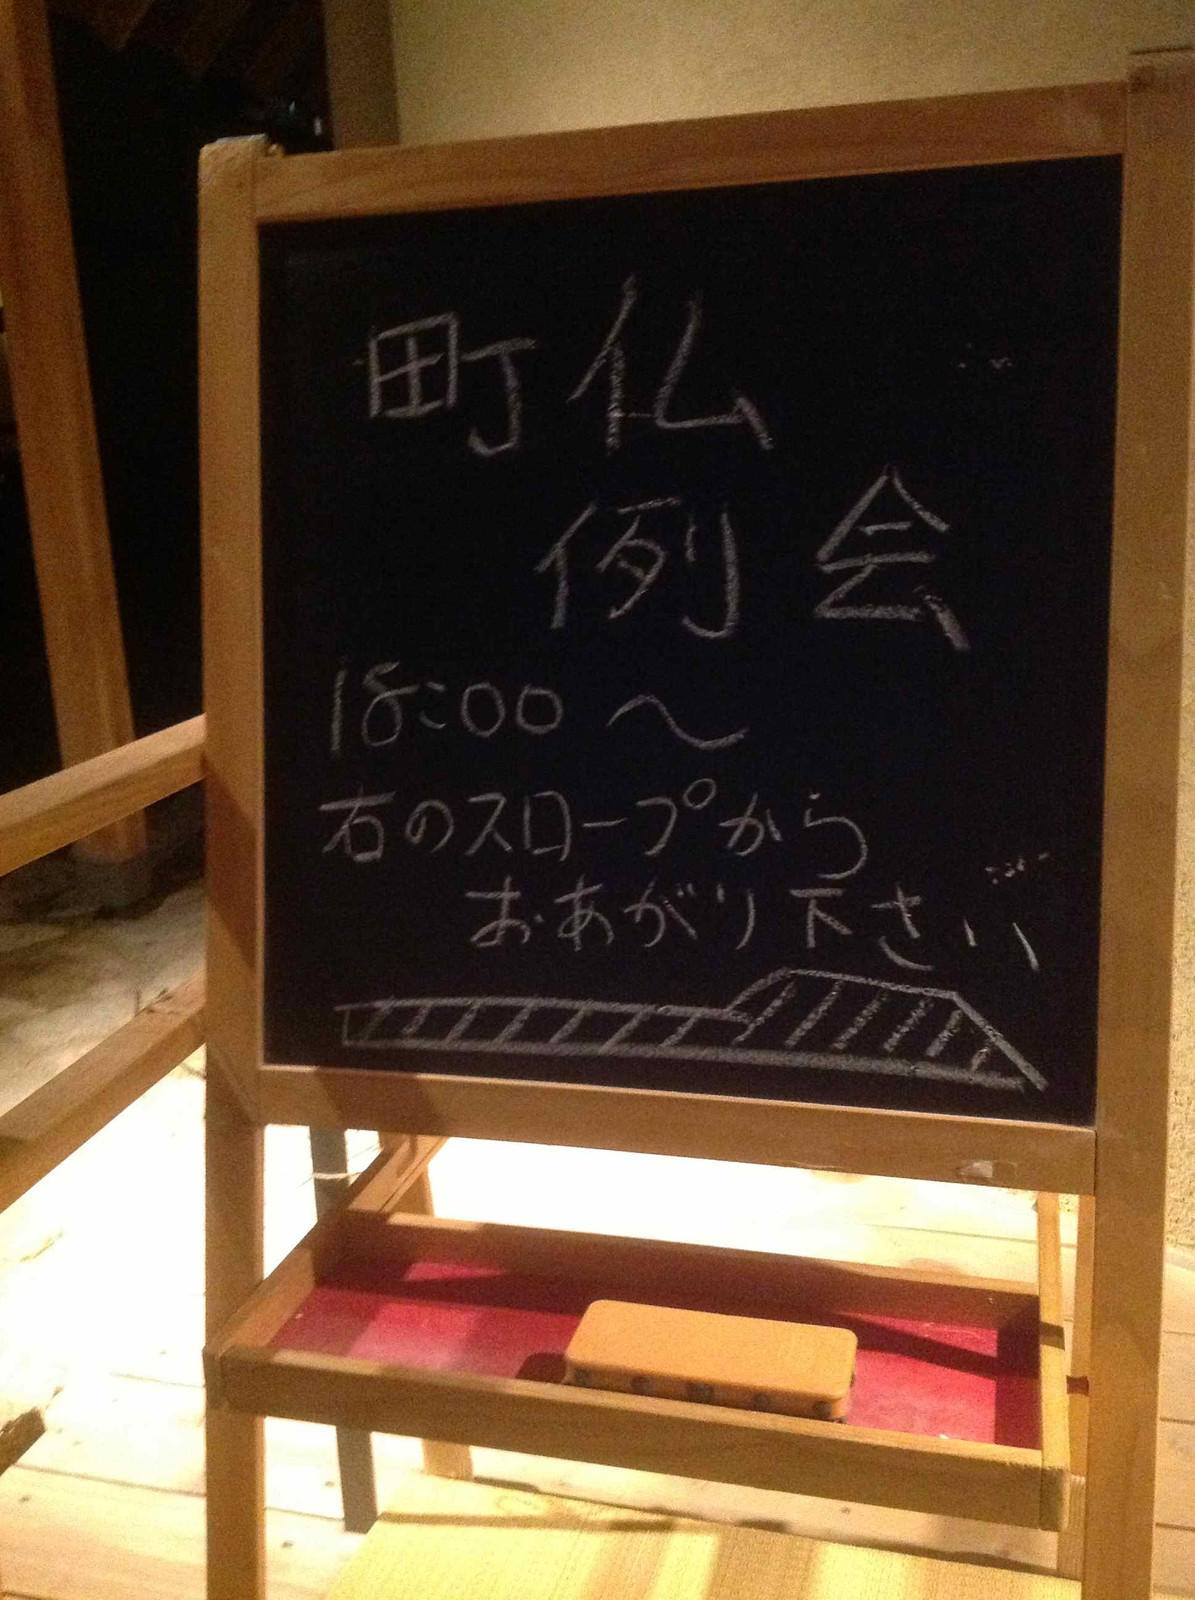 町仏
例会
18:00〜
右のスロープから
おあがり下さい